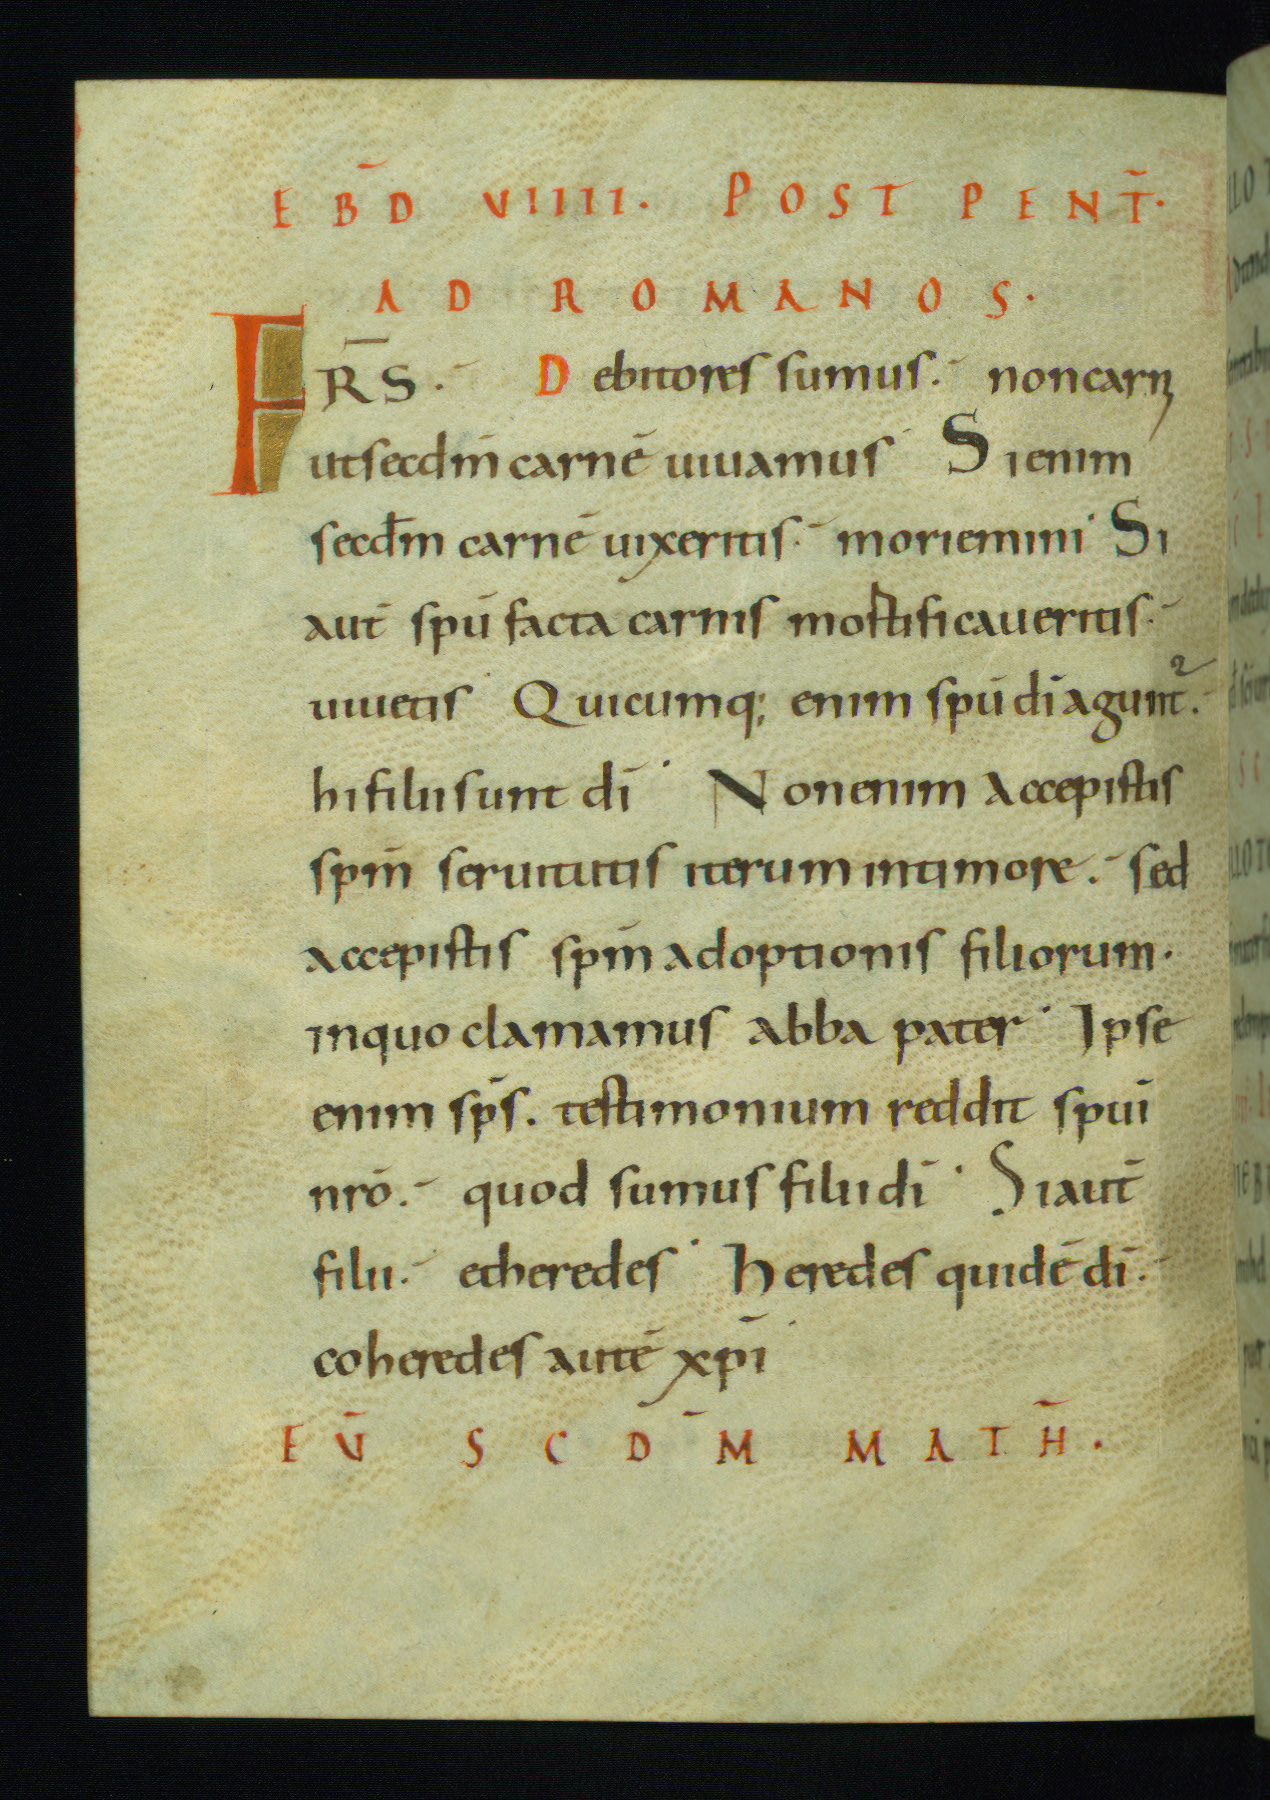 EBD̄ VIIII. POST PENT̄.
AD ROMANOS.
FR̄S. Debitores sumus. non carni
ut secdm̄ carnē uiuamus Si enim
secdm̄ carnē uixeritis. moriemini Si
aut̄ spū facta carnis mortificaueritis.
uiuetis Quicumq; enim spū dī agunt᷑.
hi filii sunt dī Non enim accepistis
spm̄ seruitutis iterum in timore. sed
accepistis spm̄ adoptionis filiorum.
in quo clamamus abba pater Ipse
enim sp̄s. testimonium reddit spūi
nrō. quod sumus filii dī Si aut̄
filii. et heredes heredes quidē dī.
coheredes autē xp̄i
EŪ SCDM̄ MATH̄.